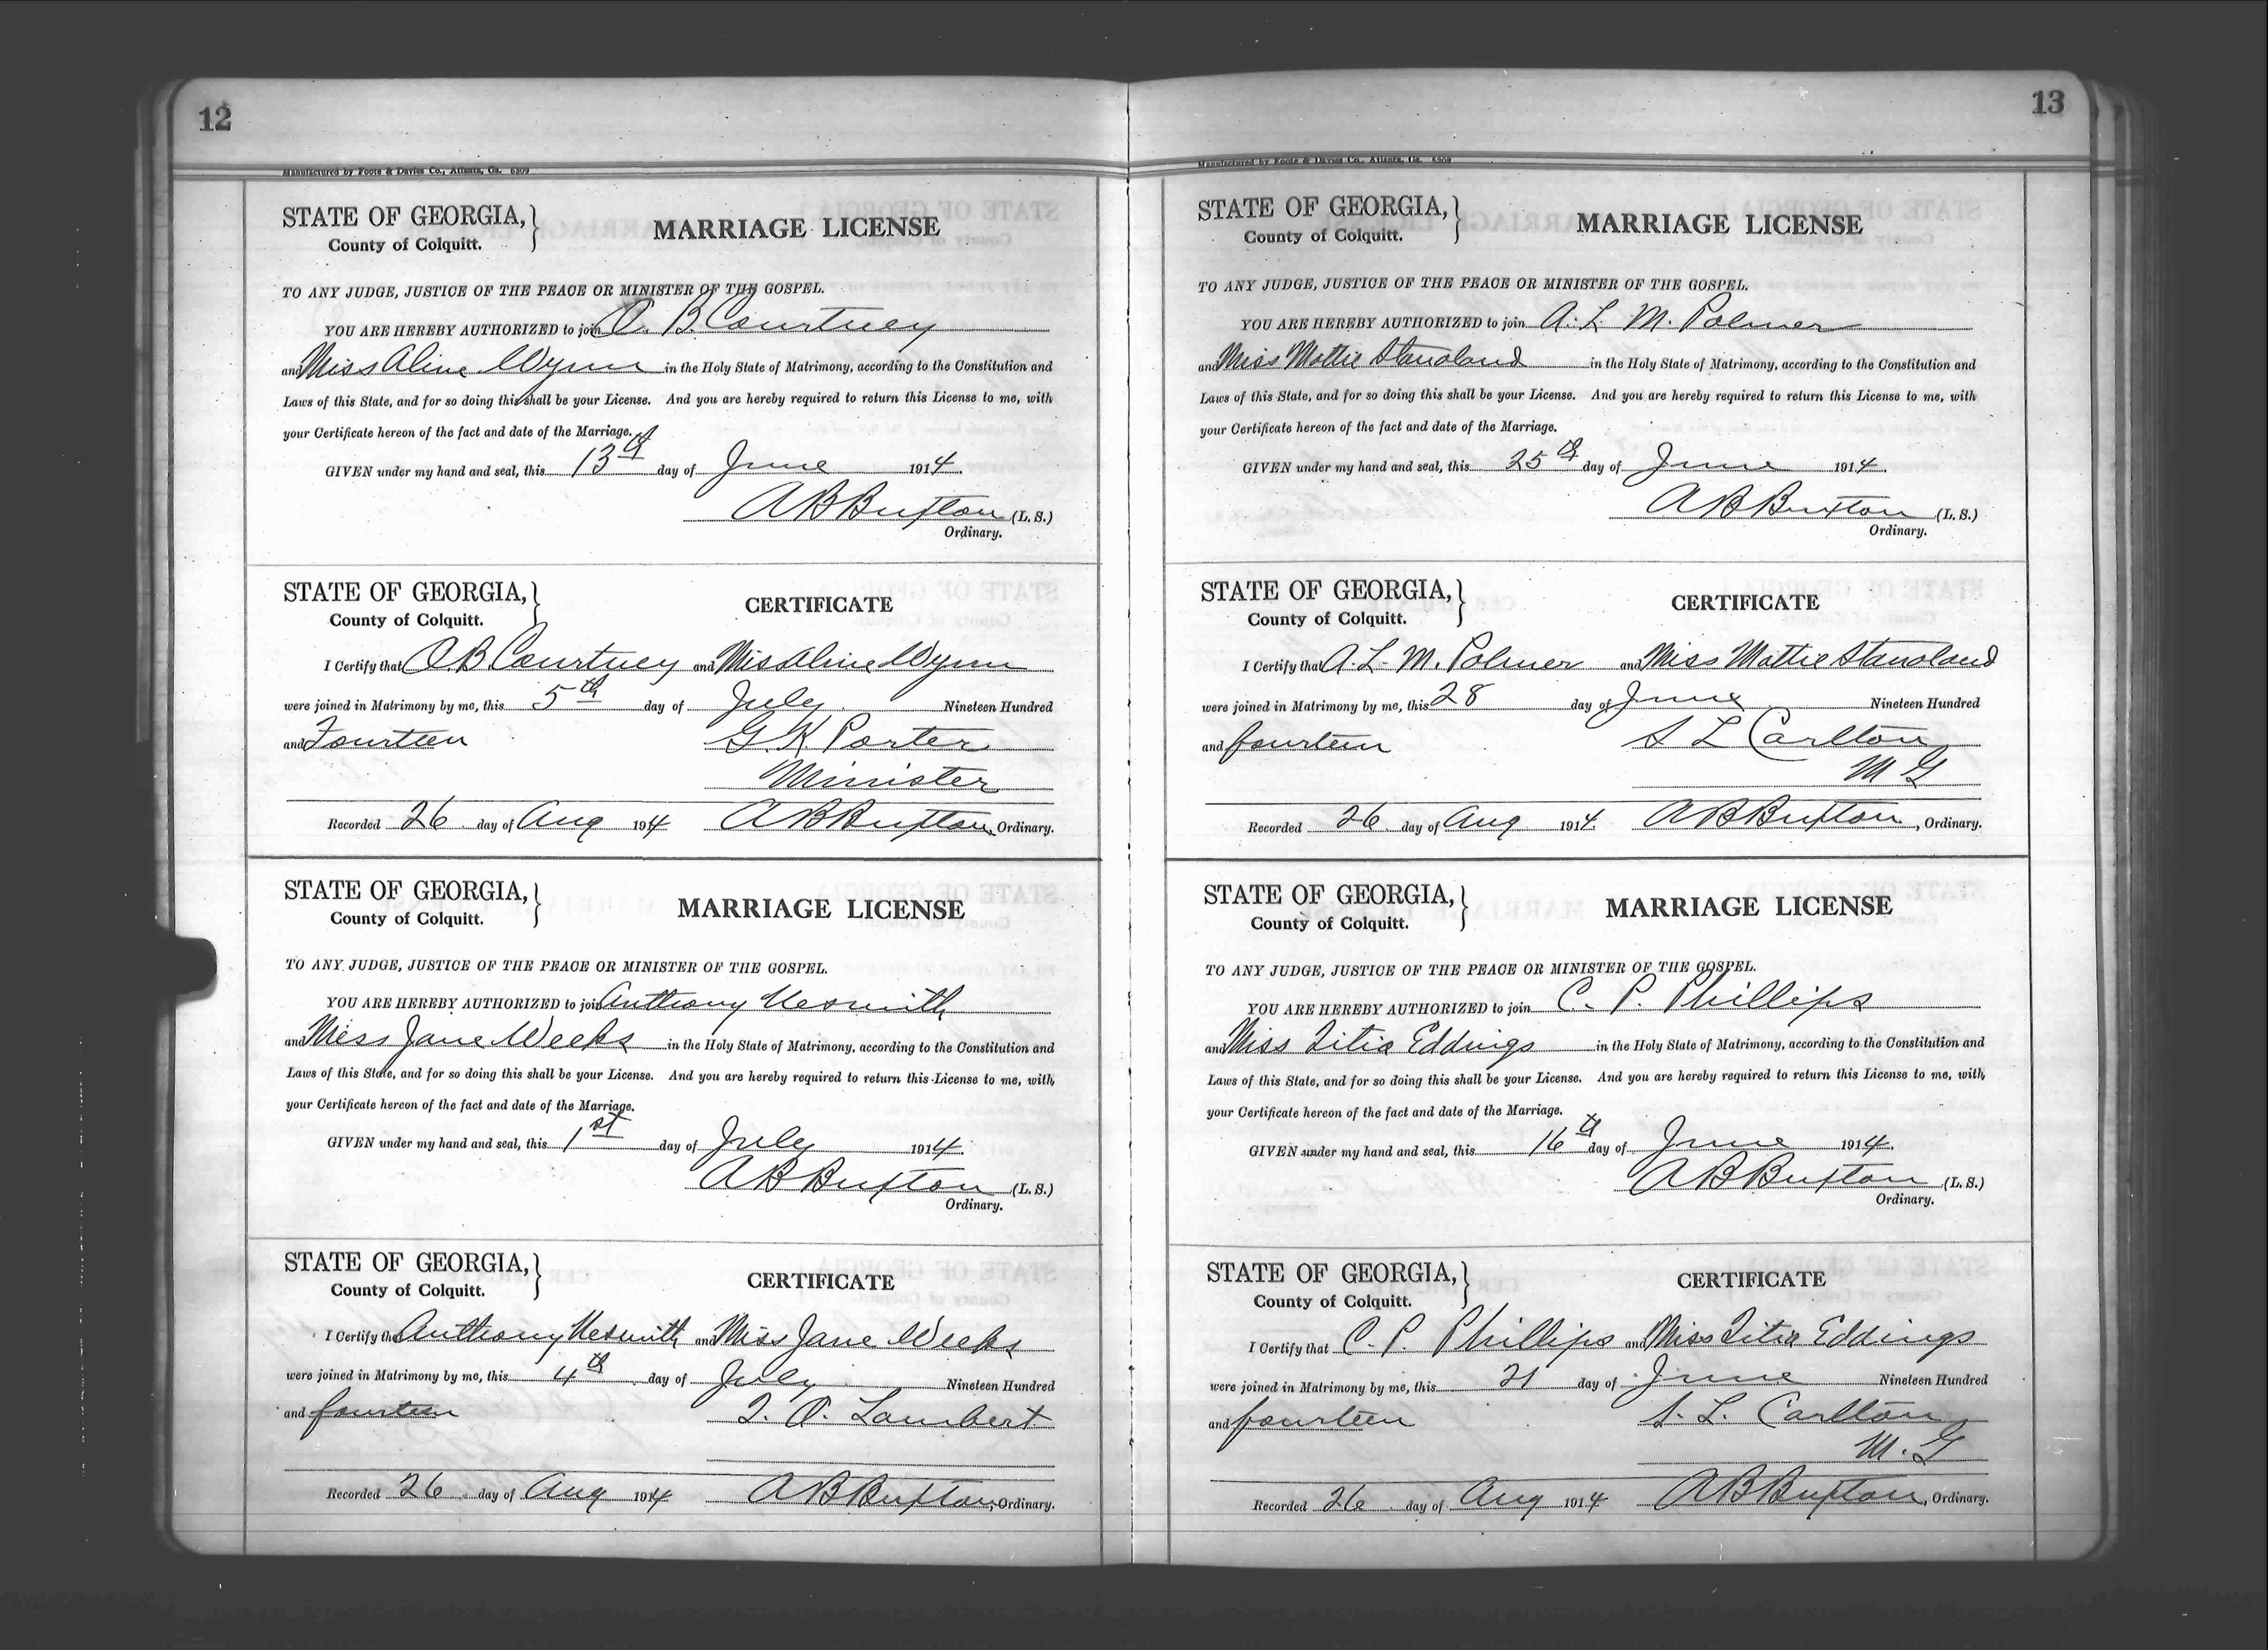 12
Manufactured by Foote & Davies Co., Atlanta, Ga. 6309
STATE OF GEORGIA,
County of Colquitt.
MARRIAGE LICENSE
TO ANY JUDGE, JUSTICE OF THE PEACE OR MINISTER OF THE GOSPEL.
YOU ARE HEREBY AUTHORIZED to join O. B. Courtney
and Miss Aline Wynn in the Holy State of Matrimony, according to the Constitution and
Laws of this State, and for so doing this shall be your License. And you are hereby required to return this License to me, with
your Certificate hereon of the fact and date of the Marriage.
GIVEN under my hand and seal, this 13th day of June 1914.
A B Buxton (L. S.)
Ordinary.
STATE OF GEORGIA,
County of Colquitt.
CERTIFICATE
I Certify that O. B Courtney and Miss Aline Wynn
were joined in Matrimony by me, this 5th day of July Nineteen Hundred
and Fourteen G. K Porter
Minister
Recorded 26 day of Aug 1914 A B Buxton, Ordinary.
STATE OF GEORGIA,
County of Colquitt.
MARRIAGE LICENSE
TO ANY JUDGE, JUSTICE OF THE PEACE OR MINISTER OF THE GOSPEL.
YOU ARE HEREBY AUTHORIZED to join Anthony Nesmith
and Miss Jane Weeks in the Holy State of Matrimony, according to the Constitution and
Laws of this State, and for so doing this shall be your License. And you are hereby required to return this License to me, with
your Certificate hereon of the fact and date of the Marriage.
GIVEN under my hand and seal, this 1st day of July 1914.
A B Buxton (L. S.)
Ordinary.
STATE OF GEORGIA,
County of Colquitt.
CERTIFICATE
I Certify that Anthony Nesmith and Miss Jane Weeks
were joined in Matrimony by me, this 4th day of July Nineteen Hundred
and fourteen O. Lambert
Recorded 26 day of Aug 1914 A B Buxton, Ordinary.
13
Manufactured by Foote & Davies Co., Atlanta, Ga. 6309
STATE OF GEORGIA,
County of Colquitt.
MARRIAGE LICENSE
TO ANY JUDGE, JUSTICE OF THE PEACE OR MINISTER OF THE GOSPEL.
YOU ARE HEREBY AUTHORIZED to join A. L M. Palmer
and Miss Mattie Stanaland in the Holy State of Matrimony, according to the Constitution and
Laws of this State, and for so doing this shall be your License. And you are hereby required to return this License to me, with
your Certificate hereon of the fact and date of the Marriage.
GIVEN under my hand and seal, this 25th day of June 1914.
A B Buxton (L. S.)
Ordinary.
STATE OF GEORGIA,
County of Colquitt.
CERTIFICATE
I Certify that A. L. M. Palmer and Miss Mattie Stanaland
were joined in Matrimony by me, this 28 day of June Nineteen Hundred
and fourteen S L Carlton
M G
Recorded 26 day of Aug 1914. A B Buxton, Ordinary.
STATE OF GEORGIA,
County of Colquitt.
MARRIAGE LICENSE
TO ANY JUDGE, JUSTICE OF THE PEACE OR MINISTER OF THE GOSPEL.
YOU ARE HEREBY AUTHORIZED to join C. P. Phillips
and Miss Eddings in the Holy State of Matrimony, according to the Constitution and
Laws of this State, and for so doing this shall be your License. And you are hereby required to return this License to me, with
your Certificate hereon of the fact and date of the Marriage.
GIVEN under my hand and seal, this 16th day of June 1914.
A B Buxton (L. S.)
Ordinary.
STATE OF GEORGIA,
County of Colquitt.
CERTIFICATE
I Certify that C. P. Phillips and Miss Eddings
were joined in Matrimony by me, this 21 day of June Nineteen Hundred
and fourteen S. L. Carlton
M. G
Recorded 26 day of Aug 1914 A B Buxton, Ordinary.